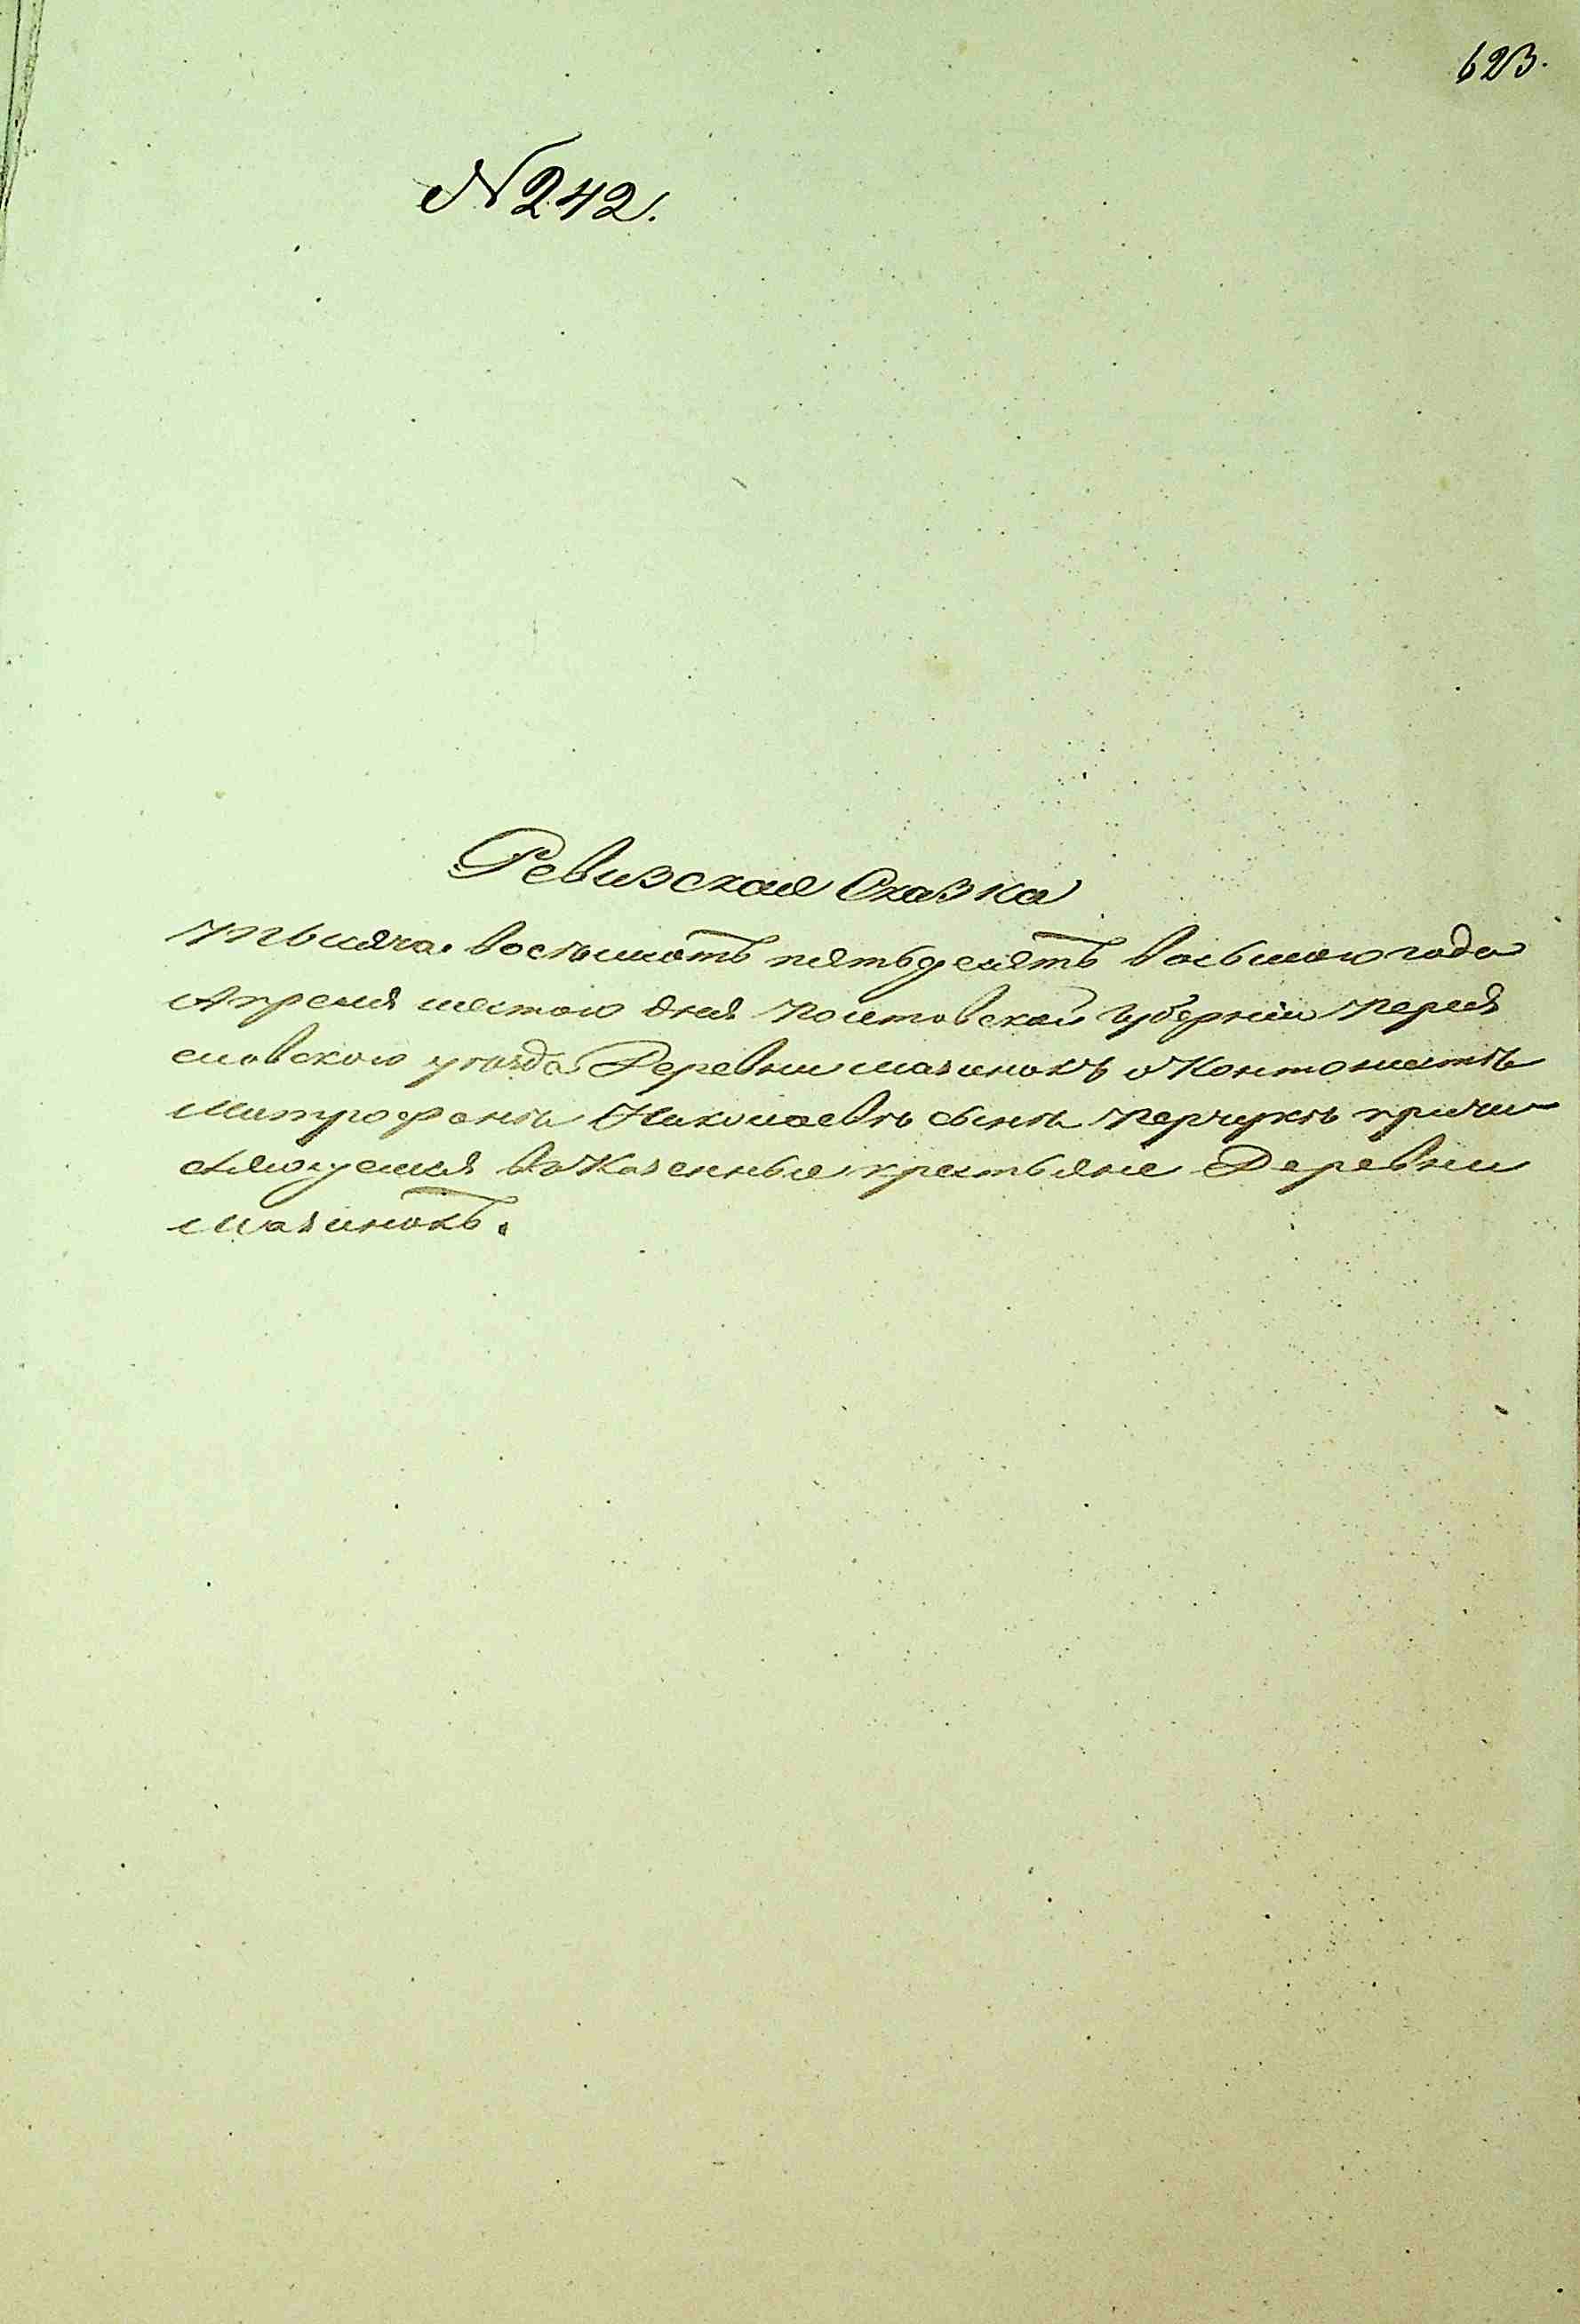 623.
№ 242.
Ревизская Сказка
Тысяча восемьсотъ пятьдесятъ восьмаго года
Апреля шестого дня Полтавской Губерніи Перея
словского уѣзда Деревни мазинокъ о Контонистѣ
Митрофанѣ Николаевѣ сынѣ Перчукѣ причи
сляющемся въ Казенные крестьяне Деревни
мазинокъ.